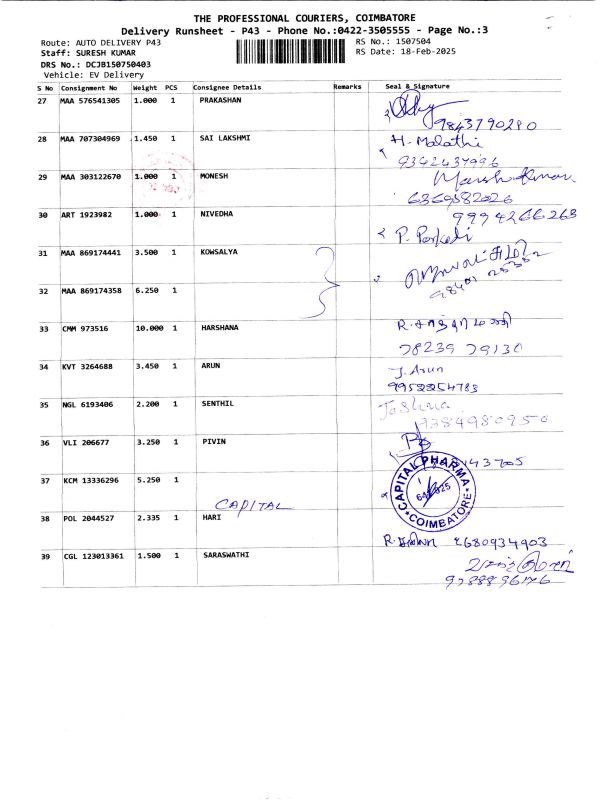 THE PROFESSIONAL COURIERS, COIMBATORE
Delivery Runsheet - P43 - Phone No.:0422-3505555 - Page No.:3
Route: AUTO DELIVERY P43 RS No.: 1507504
Staff: SURESH KUMAR RS Date: 18-Feb-2025
DRS No.: DCJB150750403
Vehicle: EV Delivery
S No Consignment No Weight PCS Consignee Details Remarks Seal & Signature
27 MAA 576541305 1.000 1 PRAKASHAN
9843790280
28 MAA 707304969 1.450 1 SAI LAKSHMI H. Malathi
9342437996
29 MAA 303122670 1.000 1 MONESH
6369582026
30 ART 1923982 1.000 1 NIVEDHA 9994266263
P.
31 MAA 869174441 3.500 1 KOWSALYA
32 MAA 869174358 6.250 1
33 CMM 973516 10.000 1 HARSHANA R.
78239 79130
34 KVT 3264688 3.450 1 ARUN J. Arun
9952254783
35 NGL 6193406 2.200 1 SENTHIL Joshua
9384980950
36 VLI 206677 3.250 1 PIVIN
37 KCM 13336296 5.250 1 CAPITAL PHARMA
COIMBATORE
CAPITAL
38 POL 2044527 2.335 1 HARI
R. 2680934903
39 CGL 123013361 1.500 1 SARASWATHI